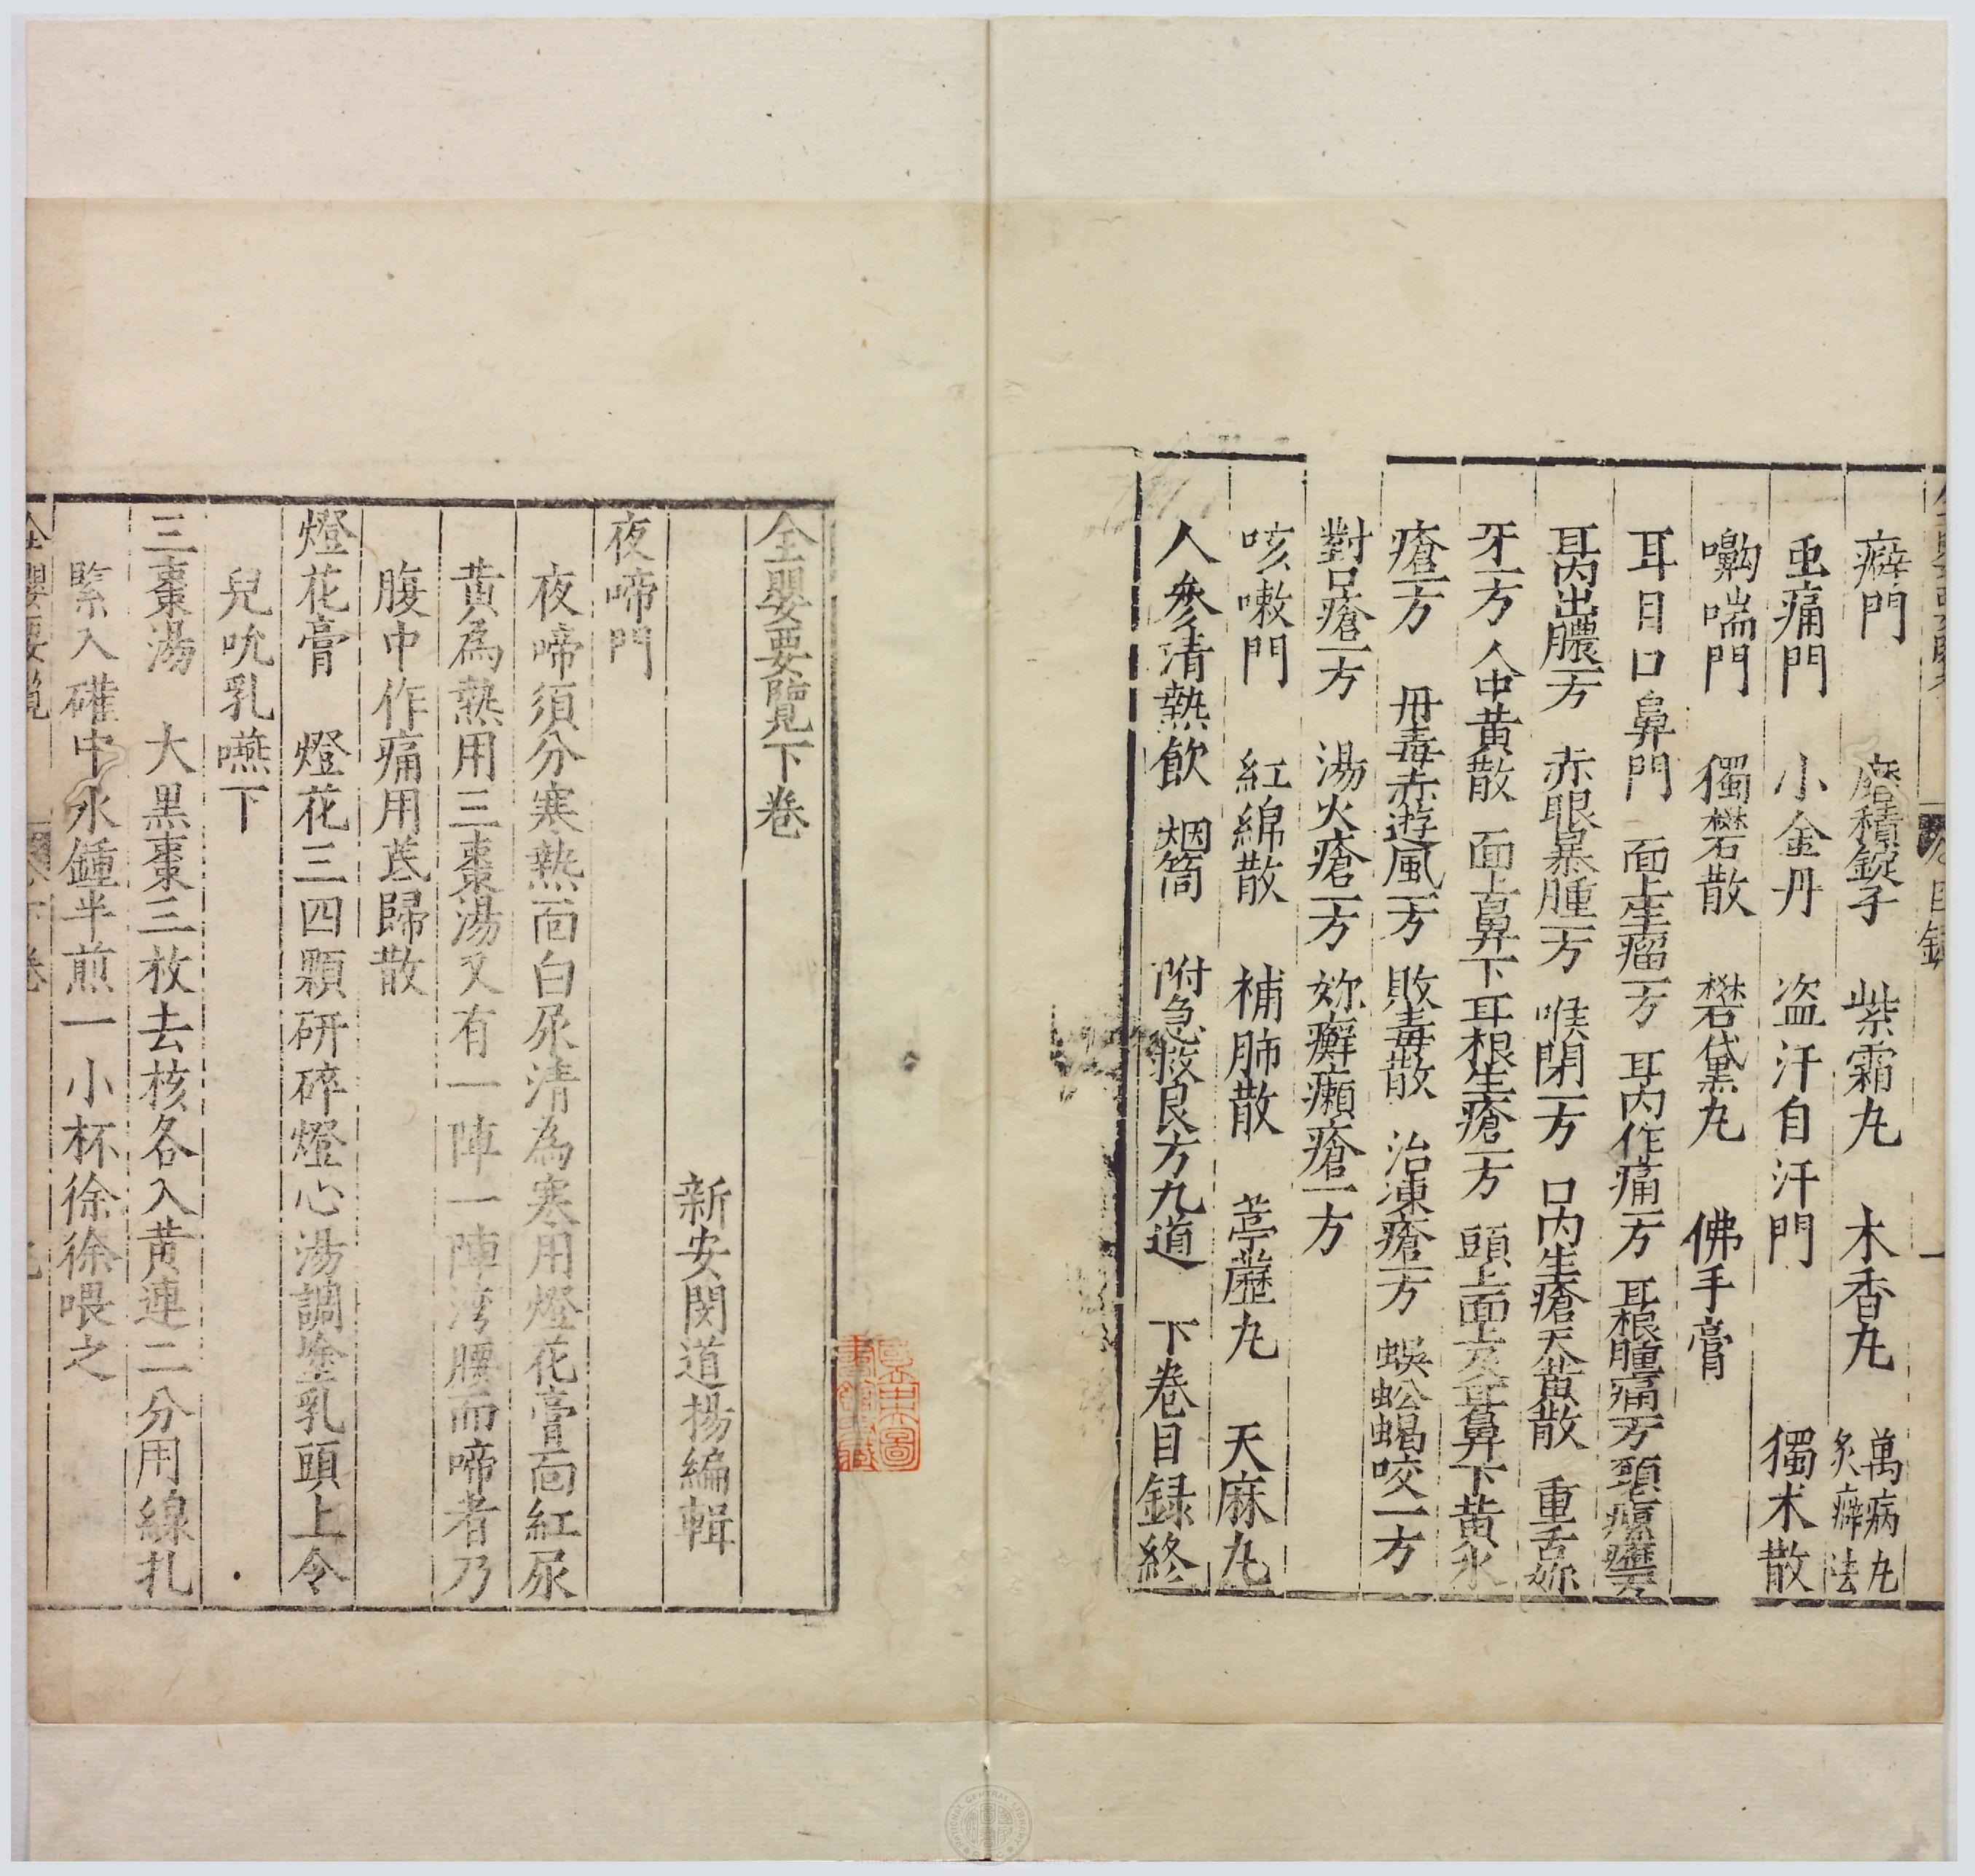 癖門　磨積錠子　紫霜丸　木香丸　萬病丸　炙癖法
虫痛門　小金丹　盗汗自汗門　獨朮散
齁喘門　獨礬散　礬黛丸　佛手膏
耳目口鼻門　面上生瘤一方　耳內作痛一方　耳根腫痛一方
耳內出膿一方　赤眼暴腫一方　喉閉一方　口內生瘡天黃散　重舌
牙一方　人中黃散　面上鼻下耳根生瘡一方　頭上面上鼻下黃水
瘡一方　丹毒赤遊風一方　敗毒散　治凍瘡一方　蜈蚣蝎咬一方
對口瘡一方　湯火瘡一方　癬癩瘡一方
咳嗽門　紅綿散　補肺散　葶藶丸　天麻丸
人參清熱飲　烟筒　附急救良方九道　下卷目録終
全嬰要覽下卷
新安閔道揚編輯
夜啼門
夜啼須分寒熱面白尿清為寒用燈花膏面紅尿
黃為熱用三棗湯又有一陣一陣湾腰而啼者乃
腹中作痛用芪歸散
燈花膏　燈花三四顆研碎燈心湯調塗乳頭上令
兒吮乳嚥下
三棗湯　大黑棗三枚去核各入黃連二分用線扎
緊入礶中水鍾半煎一小杯徐徐喂之
全嬰要覽　下卷
NATIONAL CENTRAL LIBRARY